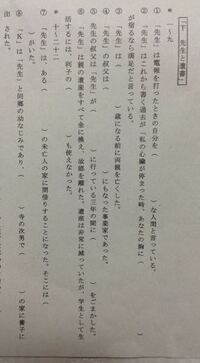 「下　先生と遺書」
＊　一～九
①　「先生」は電報を打ったときの自分を（　　　）な人間と言っている。
②　「先生」はこれから書く過去が「私の心臓が停まった時、あなたの胸に（　　　）
が宿るなら満足だと言っている。
③　「先生」は（　　　）歳になる前に両親を亡くした。
④　「先生」の叔父は（　　　）にもなった事業家であった。
⑤　先生の叔父は「先生」が（　　　）に行っている三年の間に（　　　）をごまかした。
⑥　「先生」は親の遺産をすべて金に換え、故郷を離れた。遺産は非常に減っていたが、学生として生
活するには、利子の（　　　）も使えなかった。
＊　十～
⑦　「先生」は、ある（　　　）の未亡人の家に間借りすることになった。そこには（
　　　）がいた。
⑧　「Ｋ」は「先生」と同郷の幼なじみであり、（　　　）寺の次男で（　　　）の家に養子に
出された。